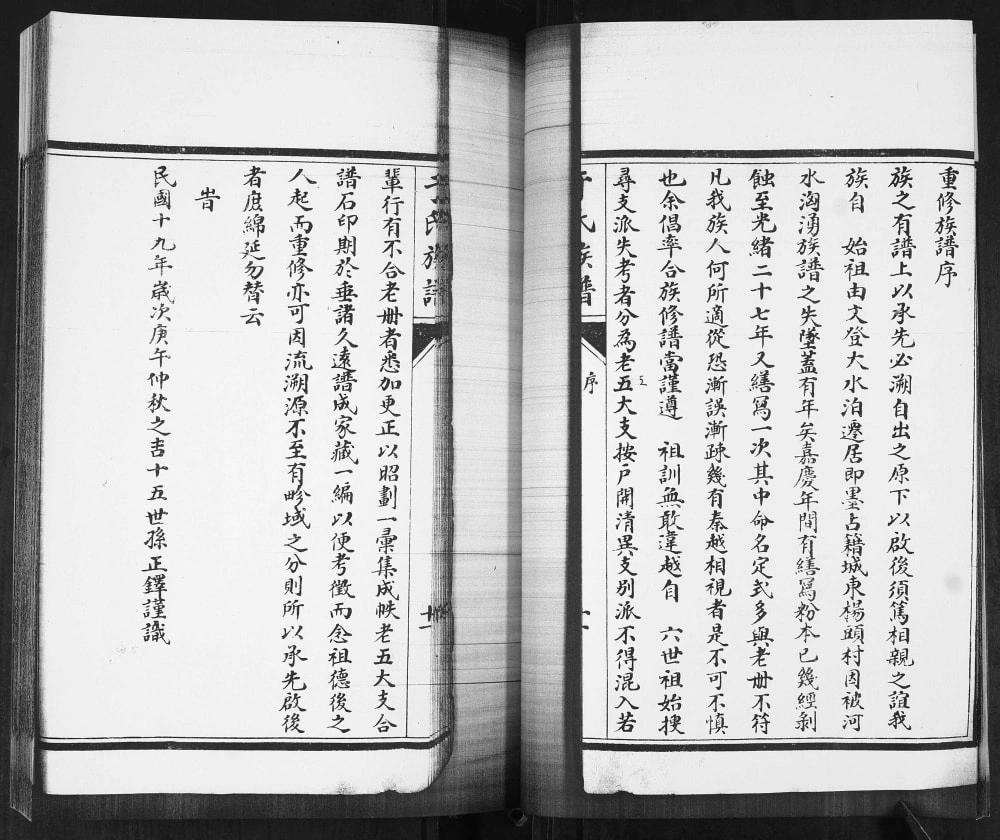 重修族譜序
族之有譜上以承先必溯自出之原下以啟後須篤相親之誼我
族自　始祖由文登大水泊遷居即墨占籍城東楊頭村因被河
水洶湧族譜之失墜蓋有年矣嘉慶年間有繕寫粉本已幾經剝
蝕至光緒二十七年又繕寫一次其中命名定式多與老冊不符
凡我族人何所適從恐漸誤漸疎幾有秦越相視者是不可不慎
也余倡率合族修譜當謹遵　祖訓無敢違越自　六世祖始挨
尋支派失考者分為老五大支按戶開清異支別派不得混入若
于氏族譜
序
十一
于氏族譜
十一
輩行有不合老冊者悉加更正以昭劃一彙集成帙老五大支合
譜石印期於垂諸久遠譜成家藏一編以便考徵而念祖德後之
人起而重修亦可因流溯源不至有畛域之分則所以承先啟後
者庶綿延勿替云
旹
民國十九年歲次庚午仲秋之吉十五世孫正鐸謹識